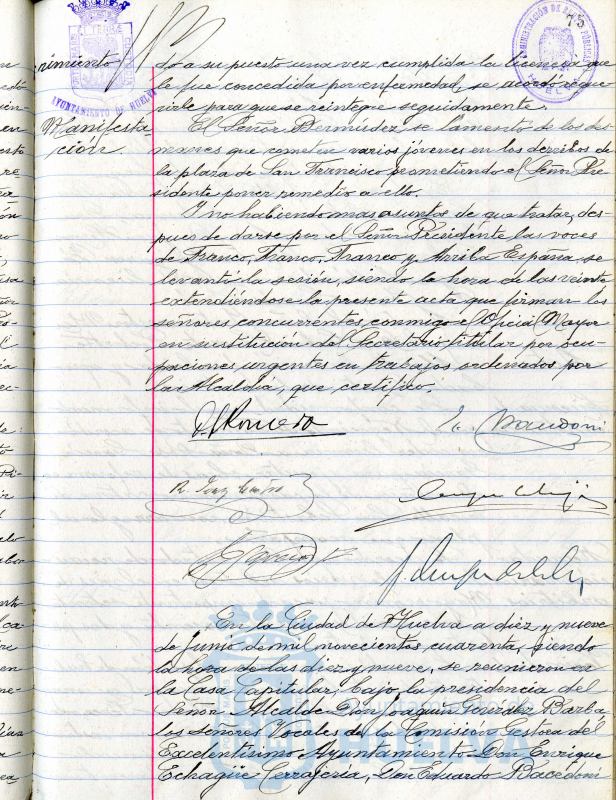 75
AYUNTAMIENTO DE HUELVA
rimiento
dó a su puesto una vez cumplida la licencia que
le fue concedida por enfermedad, se acordó reque
rirle para que se reintegre seguidamente.
Manifesta
ción
El Señor Bermúdez se lamentó de los des
manes que cometen varios jóvenes en los derribos de
la plaza de San Francisco prometiendo el Señor Pre
sidente poner remedio a ello.
Y no habiendo mas asuntos de que tratar, des
pues de darse por el Señor Presidente las voces
de Franco, Franco, Franco y Arriba España, se
levantó la sesión, siendo la hora de las veinte
extendiéndose la presente acta que firman los
señores concurrentes, conmigo el Oficial Mayor
en sustitución del Secretario titular por ocu
paciones urgentes en trabajos ordenados por
la Alcaldia, que certifico.
Romero
En la Ciudad de Huelva a diez y nueve
de Junio de mil novecientos cuarenta, siendo
la hora de las diez y nueve, se reunieron en
la Casa Capitular, bajo la presidencia del
Señor Alcalde Don Joaquín González Barba,
los señores Vocales de la Comisión Gestora del
Excelentísimo Ayuntamiento Don Enrique
Echagüe Cerrajería, Don Eduardo Bacedoni